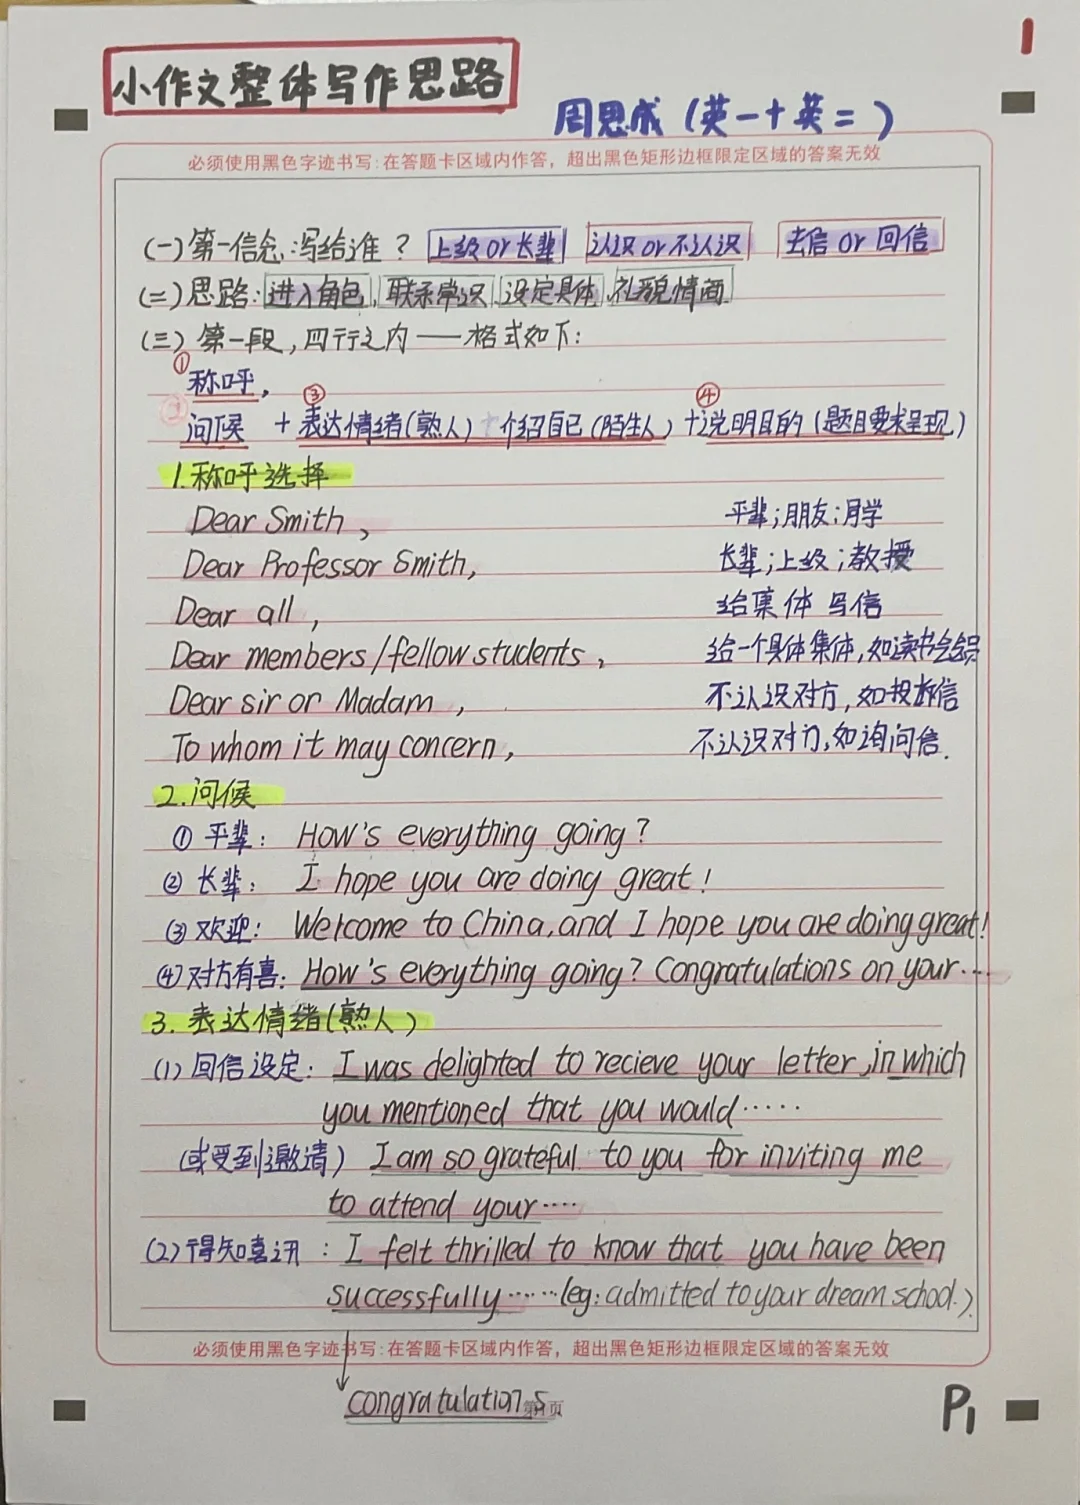 1
小作文整体写作思路
周思成（英一+英二）
必须使用黑色字迹书写:在答题卡区域内作答，超出黑色矩形边框限定区域的答案无效
(一)第一信念:写给谁？ 上级or长辈 认识or不认识 去信or回信
(二)思路:进入角色,联系常识,设定具体,礼貌情商
(三)第一段,四行之内——格式如下:
①称呼,
问候 +③表达情绪(熟人)+介绍自己(陌生人)+④说明目的(题目要求呈现)
1.称呼选择
Dear Smith, 平辈;朋友;同学
Dear Professor Smith, 长辈;上级;教授
Dear all, 给集体写信
Dear members/fellow students, 给一个具体集体,如读书会会员
Dear sir or Madam, 不认识对方,如投诉信
To whom it may concern, 不认识对方,如询问信.
2.问候
①平辈: How's everything going?
②长辈: I hope you are doing great!
③欢迎: Welcome to China,and I hope you are doing great!
④对方有喜: How's everything going? Congratulations on your...
3.表达情绪(熟人)
(1)回信设定: I was delighted to recieve your letter,in which
you mentioned that you would……
(或受到邀请) I am so grateful to you for inviting me
to attend your....
(2)得知喜讯: I felt thrilled to know that you have been
successfully……(eg:admitted to your dream school.)
必须使用黑色字迹书写:在答题卡区域内作答，超出黑色矩形边框限定区域的答案无效
congratulations
第1页
P1